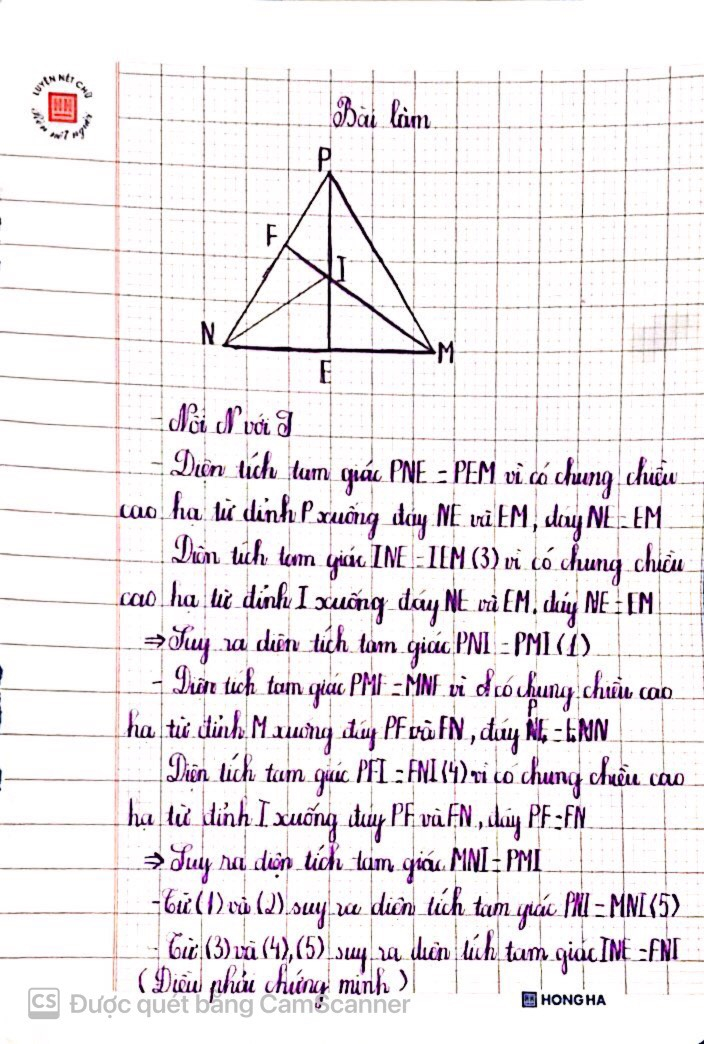 LUYỆN NÉT CHỮ
Rèn nết người
Bài làm
P
F
I
N
M
E
- Nối N với I
- Diện tích tam giác PNE = PEM vì có chung chiều
cao hạ từ đỉnh P xuống đáy NE và EM, đáy NE = EM
Diện tích tam giác INE = IEM (3) vì có chung chiều
cao hạ từ đỉnh I xuống đáy NE và EM, đáy NE = EM
⇒ Suy ra diện tích tam giác PNI = PMI (1)
- Diện tích tam giác PMF = MNF vì có chung chiều cao
hạ từ đỉnh M xuống đáy PF và FN, đáy
Diện tích tam giác PFI = FNI (4) vì có chung chiều cao
hạ từ đỉnh I xuống đáy PF và FN, đáy PF = FN
⇒ Suy ra diện tích tam giác MNI = PMI
- Từ (1) và (2) suy ra diện tích tam giác PNI = MNI (5)
- Từ (3) và (4), (5) suy ra diện tích tam giác INE = FNI
(Điều phải chứng minh)
CS Được quét bằng CamScanner
HH HONG HA